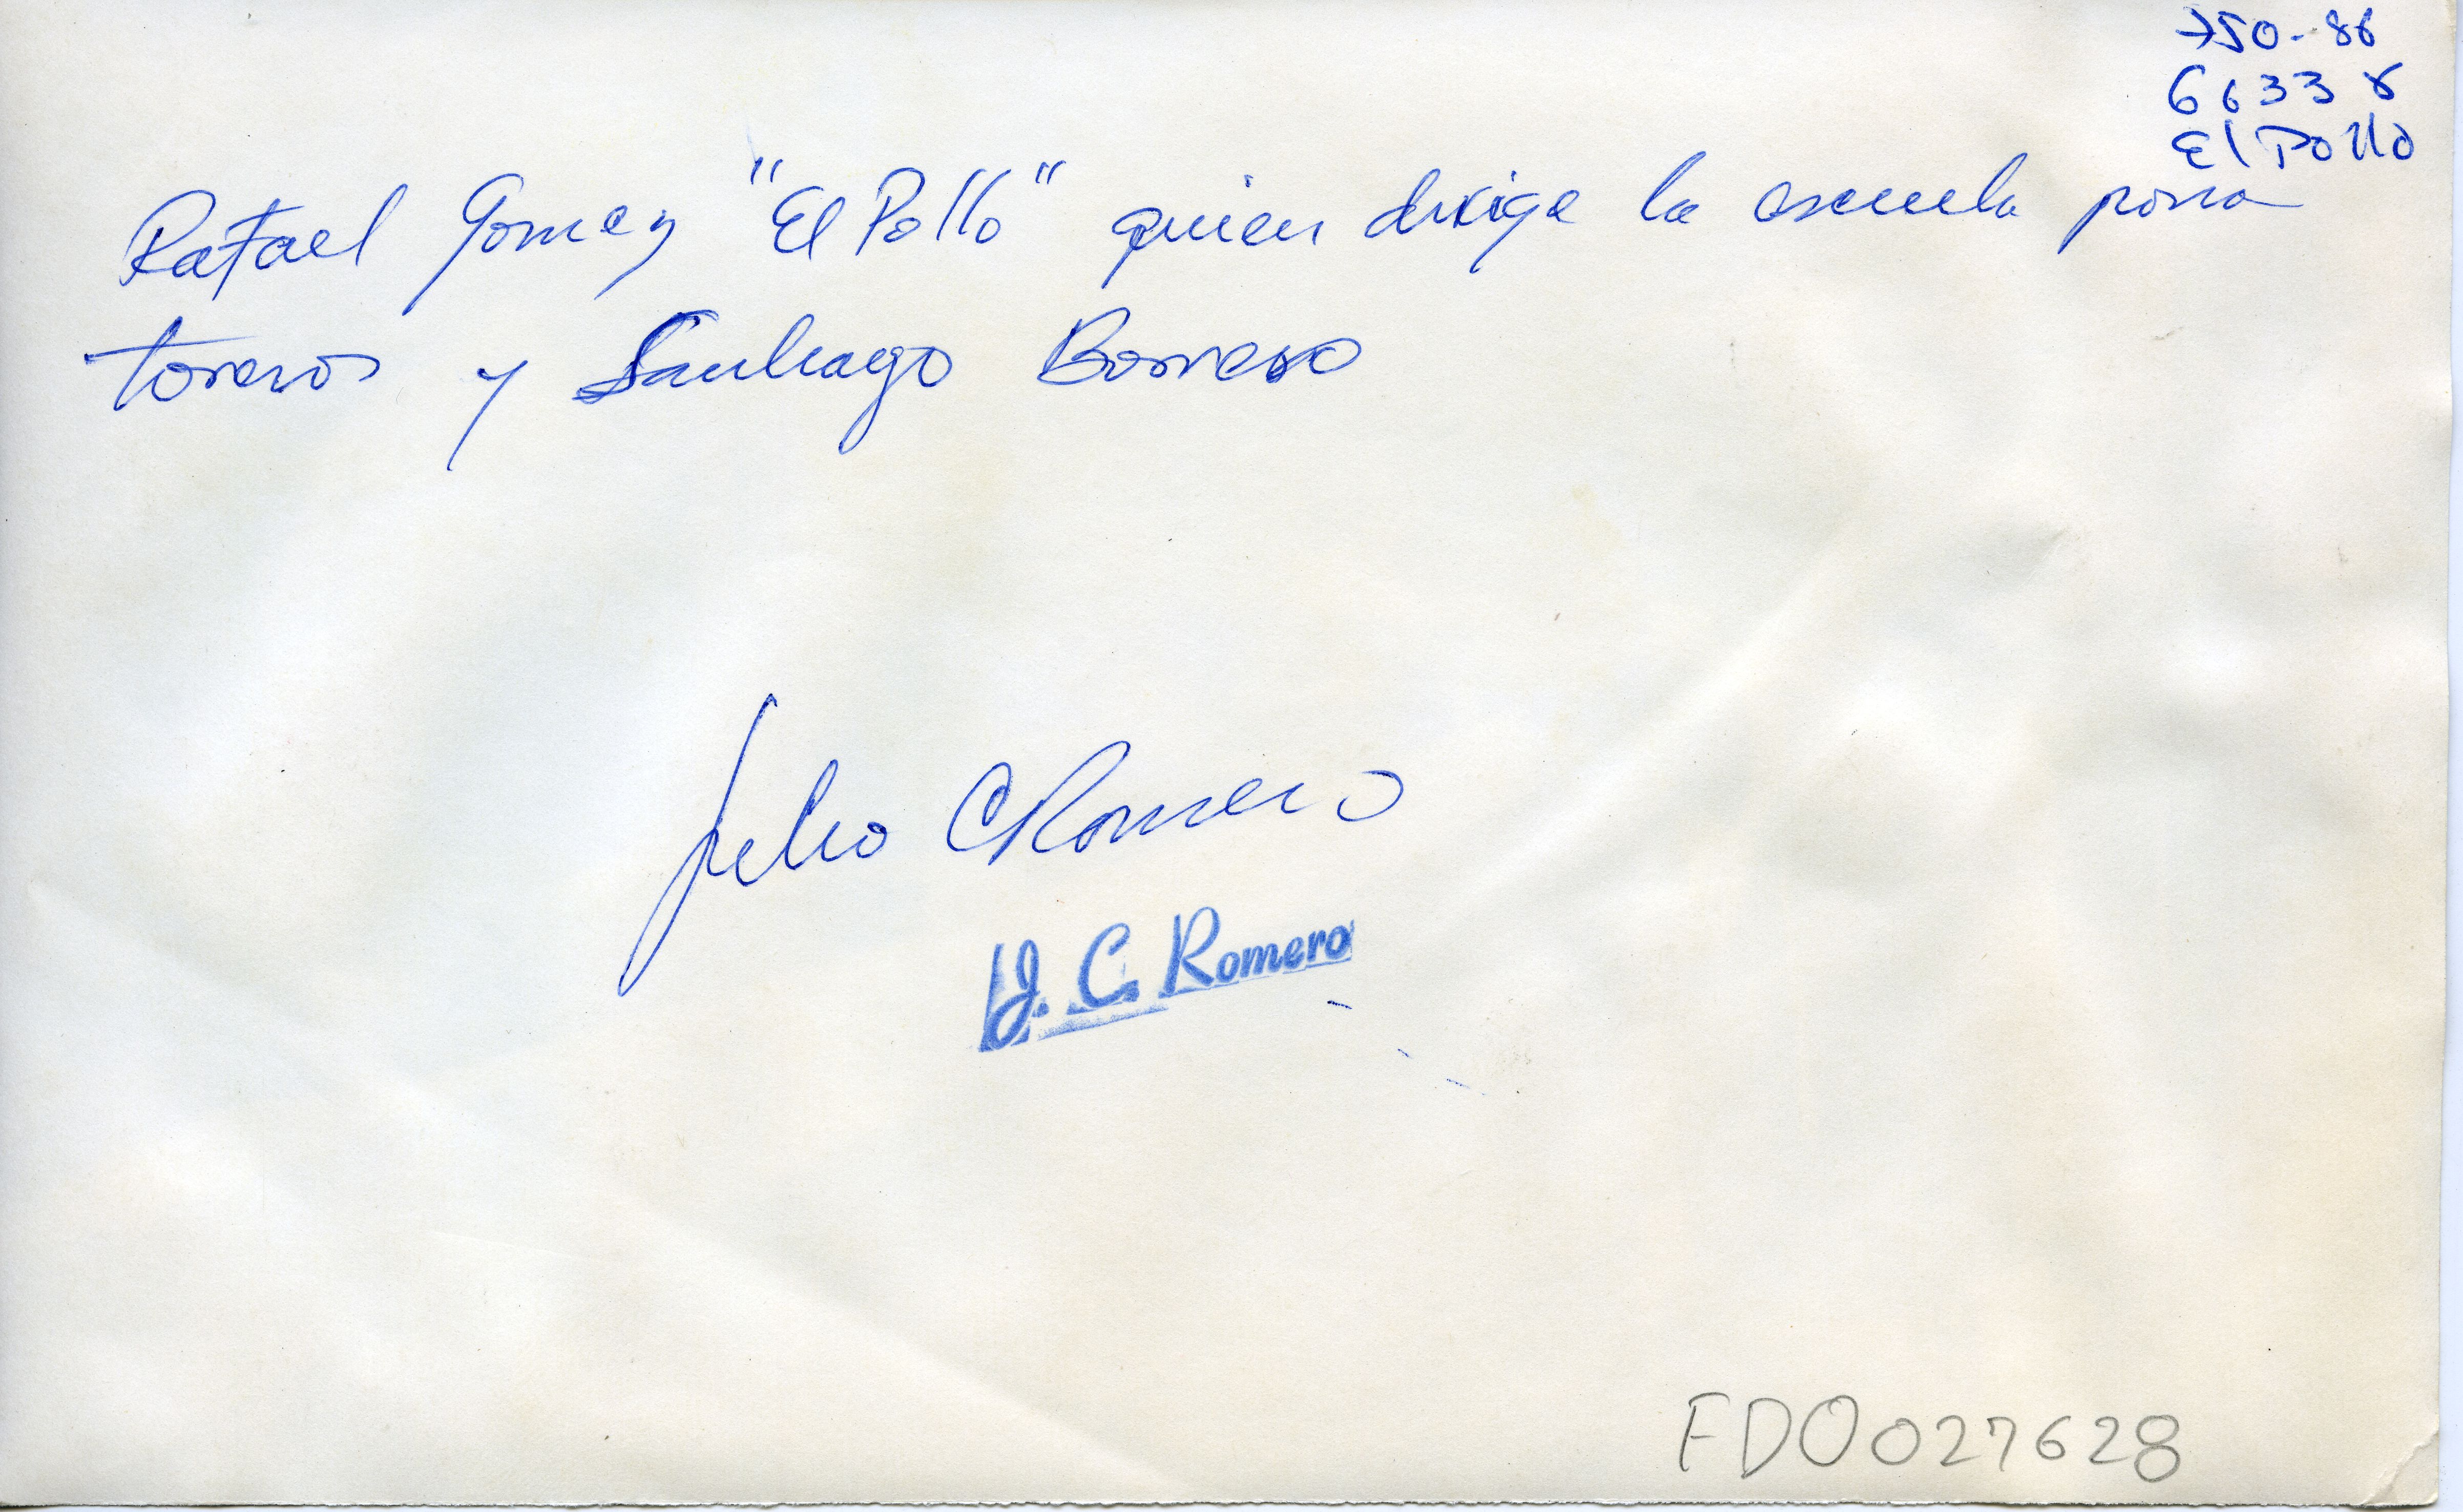 →50-86
66338
El Pollo
Rafael Gomez "El Pollo" quien dirige la escuela para
toreros y Santiago Borrero
Julio C Romero
J. C. Romero
FD0027628